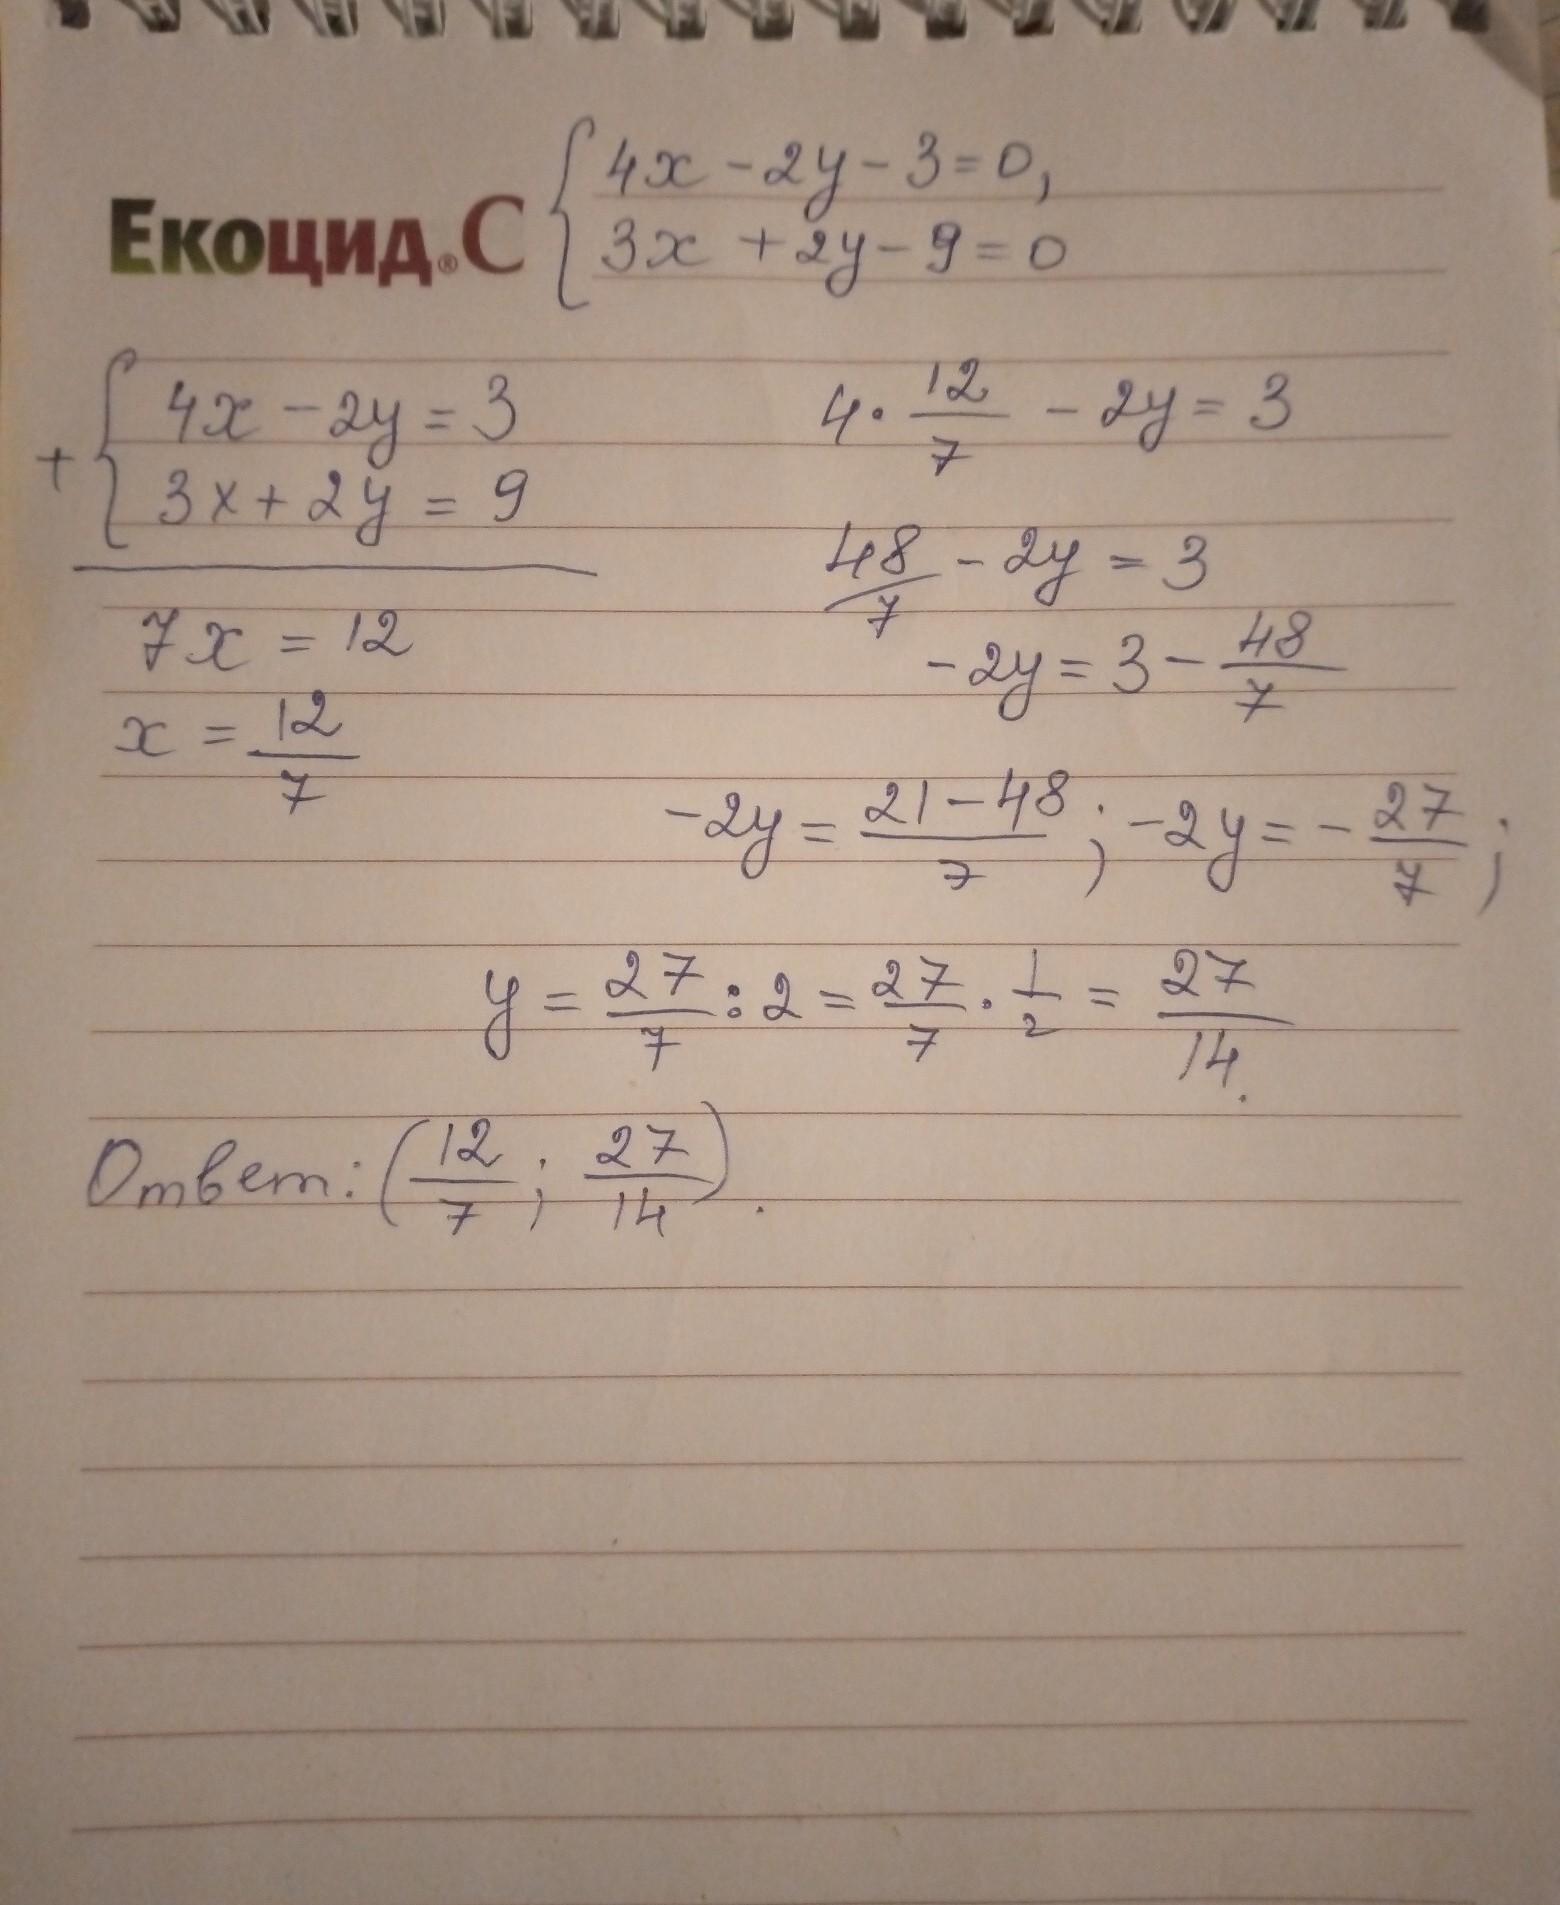 Екоцид®С
{ 4x - 2y - 3 = 0,
3x + 2y - 9 = 0
+ { 4x - 2y = 3
3x + 2y = 9
7x = 12
x = 12/7
4 · 12/7 - 2y = 3
48/7 - 2y = 3
-2y = 3 - 48/7
-2y = (21 - 48)/7 ; -2y = - 27/7 ;
y = 27/7 : 2 = 27/7 · 1/2 = 27/14.
Ответ: (12/7 ; 27/14).